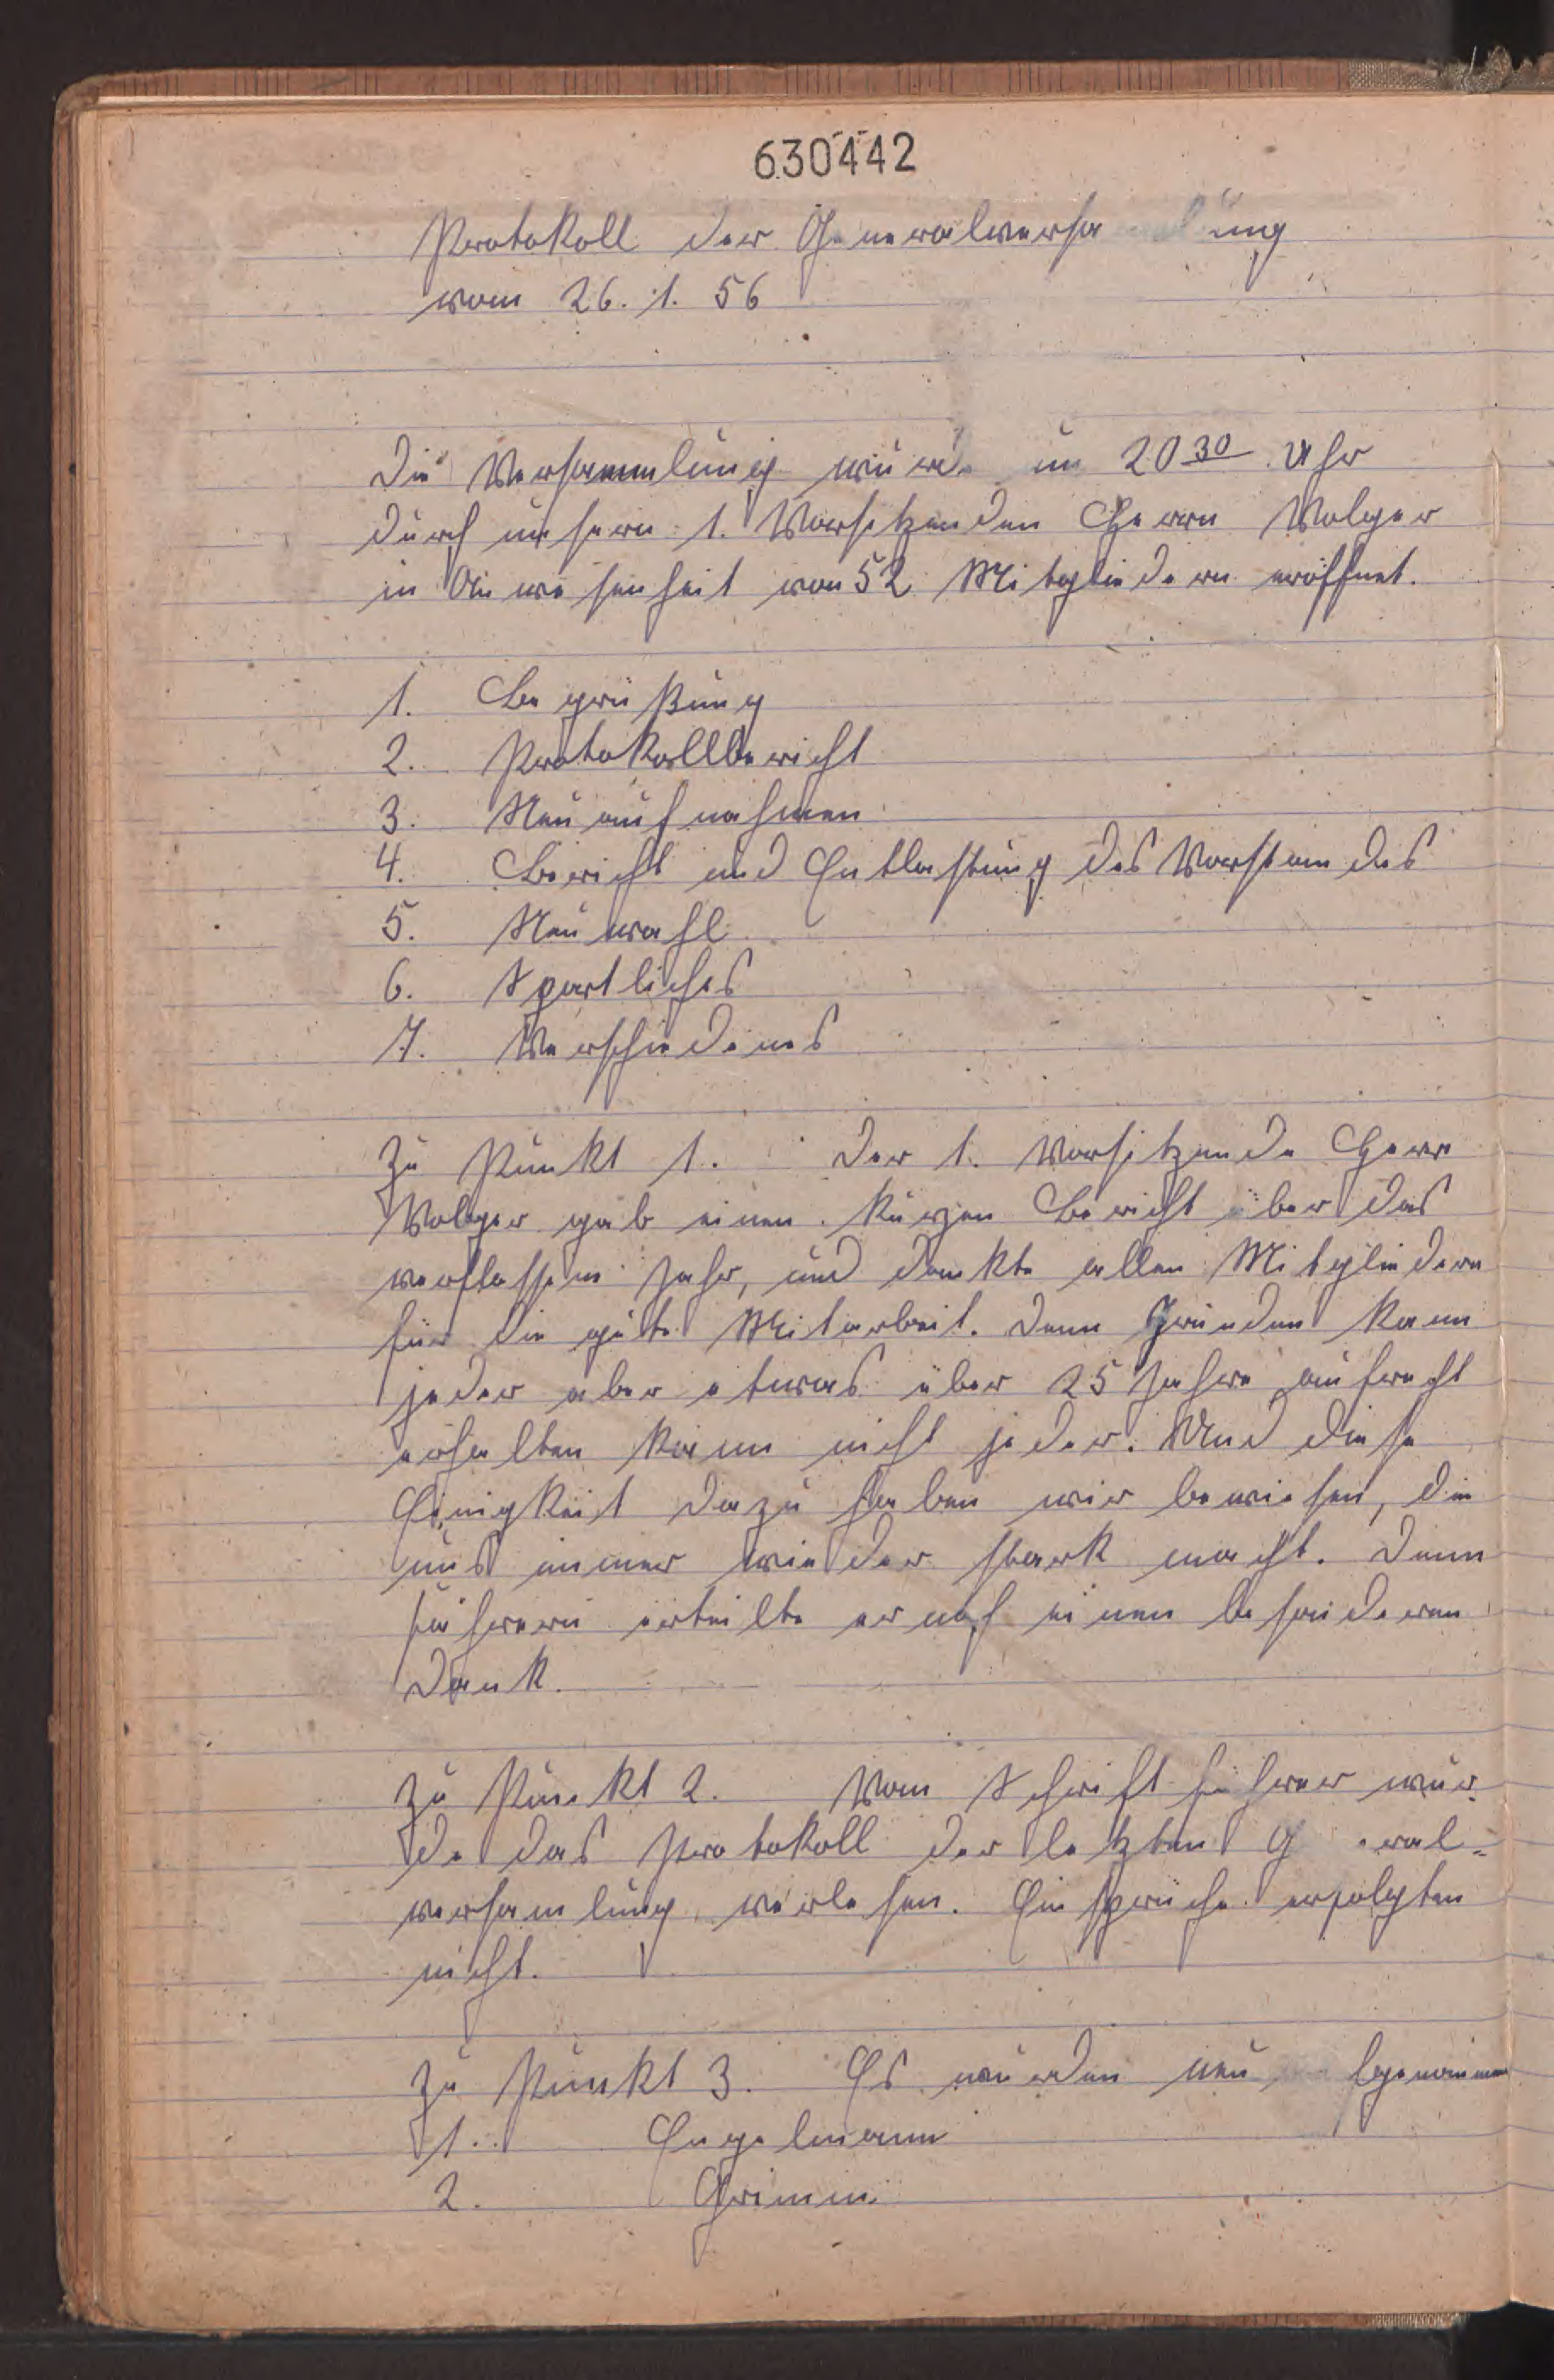 630442
Protokoll der Generalversammlung
vom 26. 1. 56
Die Versammlung wurde um 20 30 Uhr
durch unsern 1. Vorsitzenden Herrn Wolger
in Anwesenheit von 52 Mitgliedern eröffnet.
1. Begrüßung
2. Protokollbericht
3. Neuaufnahmen
4. Bericht und Entlastung des Vorstandes
5. Neuwahl
6. Sportliches
7. Verschiedenes
Zu Punkt 1. Der 1. Vorsitzende Herr
Wolger gab einen kurzen Bericht über das
verflossene Jahr, und dankte allen Mitgliedern
für die gute Mitarbeit. Denn Gründen kann
jeder aber etwas über 25 Jahre aufrecht
erhalten kann nicht jeder. Und diese
Einigkeit dazu haben wir bewiesen, die
uns immer wieder stark macht. Denn
führern erteilte er noch einen besonderen
Dank.
Zu Punkt 2. Vom Schriftführer wur-
de das Protokoll der letzten General-
versamlung verlesen. Einsprüche erfolgten
nicht.
Zu Punkt 3. Es wurden neu aufgenommen
1. Engelmann
2. Grimm